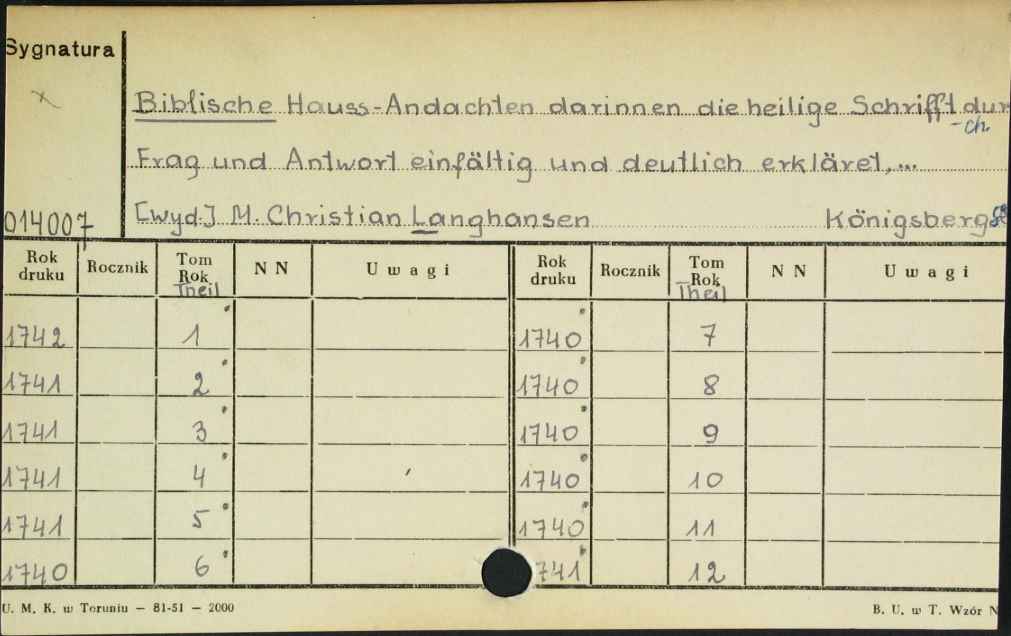 Sygnatura
x
Biblische Hauss-Andachten darinnen die heilige Schrifft dur
-ch
Frag und Antwort einfältig und deutlich erkläret,...
014007 [wyd.] M. Christian Langhansen Königsberg
Rok druku Rocznik Tom Rok Theil N N Uwagi Rok druku Rocznik Tom Rok Theil N N Uwagi
1742 1 1740 7
1741 2 1740 8
1741 3 1740 9
1741 4 1740 10
1741 5 1740 11
1740 6 741 12
U. M. K. w Toruniu — 81-51 — 2000 B. U. w T. Wzór N